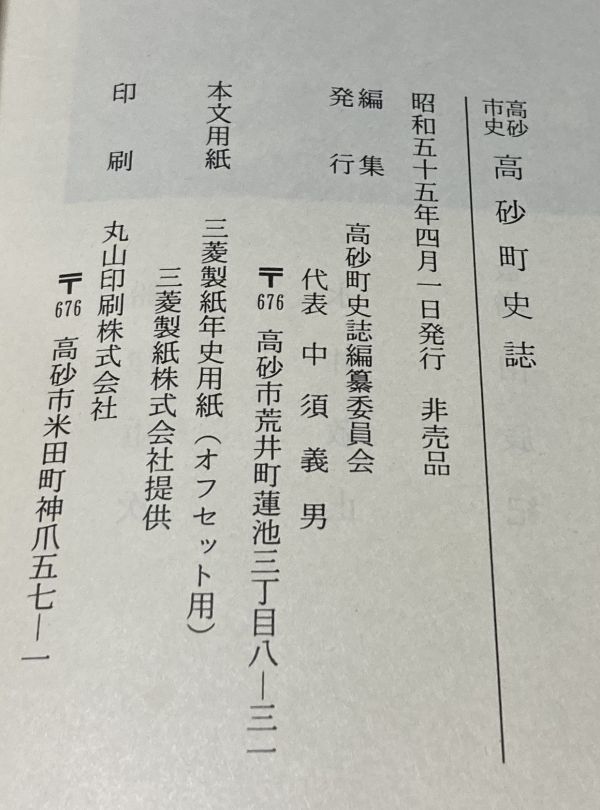 高砂市史 高砂町史誌
昭和五十五年四月一日発行 非売品
編集
発行 高砂町史誌編纂委員会
代表 中須義男
〒676 高砂市荒井町蓮池三丁目八―三一
本文用紙 三菱製紙年史用紙(オフセット用)
三菱製紙株式会社提供
印刷 丸山印刷株式会社
〒676 高砂市米田町神爪五七―一